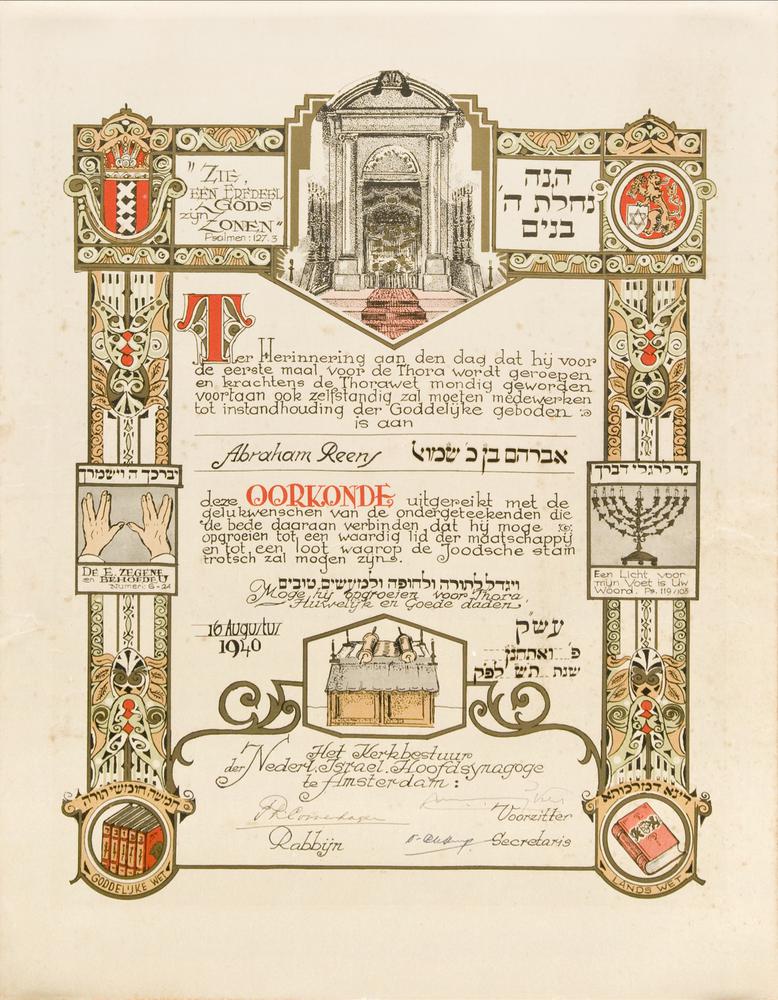 "ZIE,
EEN ERFDEEL
GODS
zijn
ZONEN"
Psalmen: 127.3
הנה
נחלת ה'
בנים
Ter Herinnering aan den dag dat hij voor
de eerste maal voor de Thora wordt geroepen
en krachtens de Thorawet mondig geworden
voortaan ook zelfstandig zal moeten medewerken
tot instandhouding der Goddelijke geboden
is aan
Abraham Reens
אברהם בן כ' שמואל
יברכך ה' וישמרך
DE E. ZEGENE
en BEHOEDE U
Numeri: 6-24
נר לרגלי דברך
Een Licht voor
mijn Voet is Uw
Woord. Ps. 119/105
deze OORKONDE uitgereikt met de
gelukwenschen van de ondergeteekenden die
de bede daaraan verbinden dat hij moge
opgroeien tot een waardig lid der maatschappij
en tot een loot waarop de Joodsche stam
trotsch zal mogen zijn.
ויגדל לתורה ולחופה ולמעשים טובים
Moge hij opgroeien voor Thora,
Huwelijk en Goede daden.
16 Augustus
1940
עש"ק
פ' ואתחנן
שנת תש לפק
Het Kerkbestuur
der Nederl. Israel. Hoofdsynagoge
te Amsterdam:
Voorzitter
Rabbijn
Secretaris
חמשה חומשי תורה
GODDELIJKE WET
דינא דמלכותא
LANDS WET